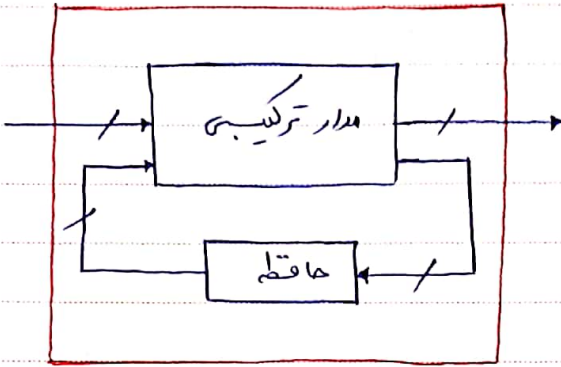 مدار ترکیبی
حافظه